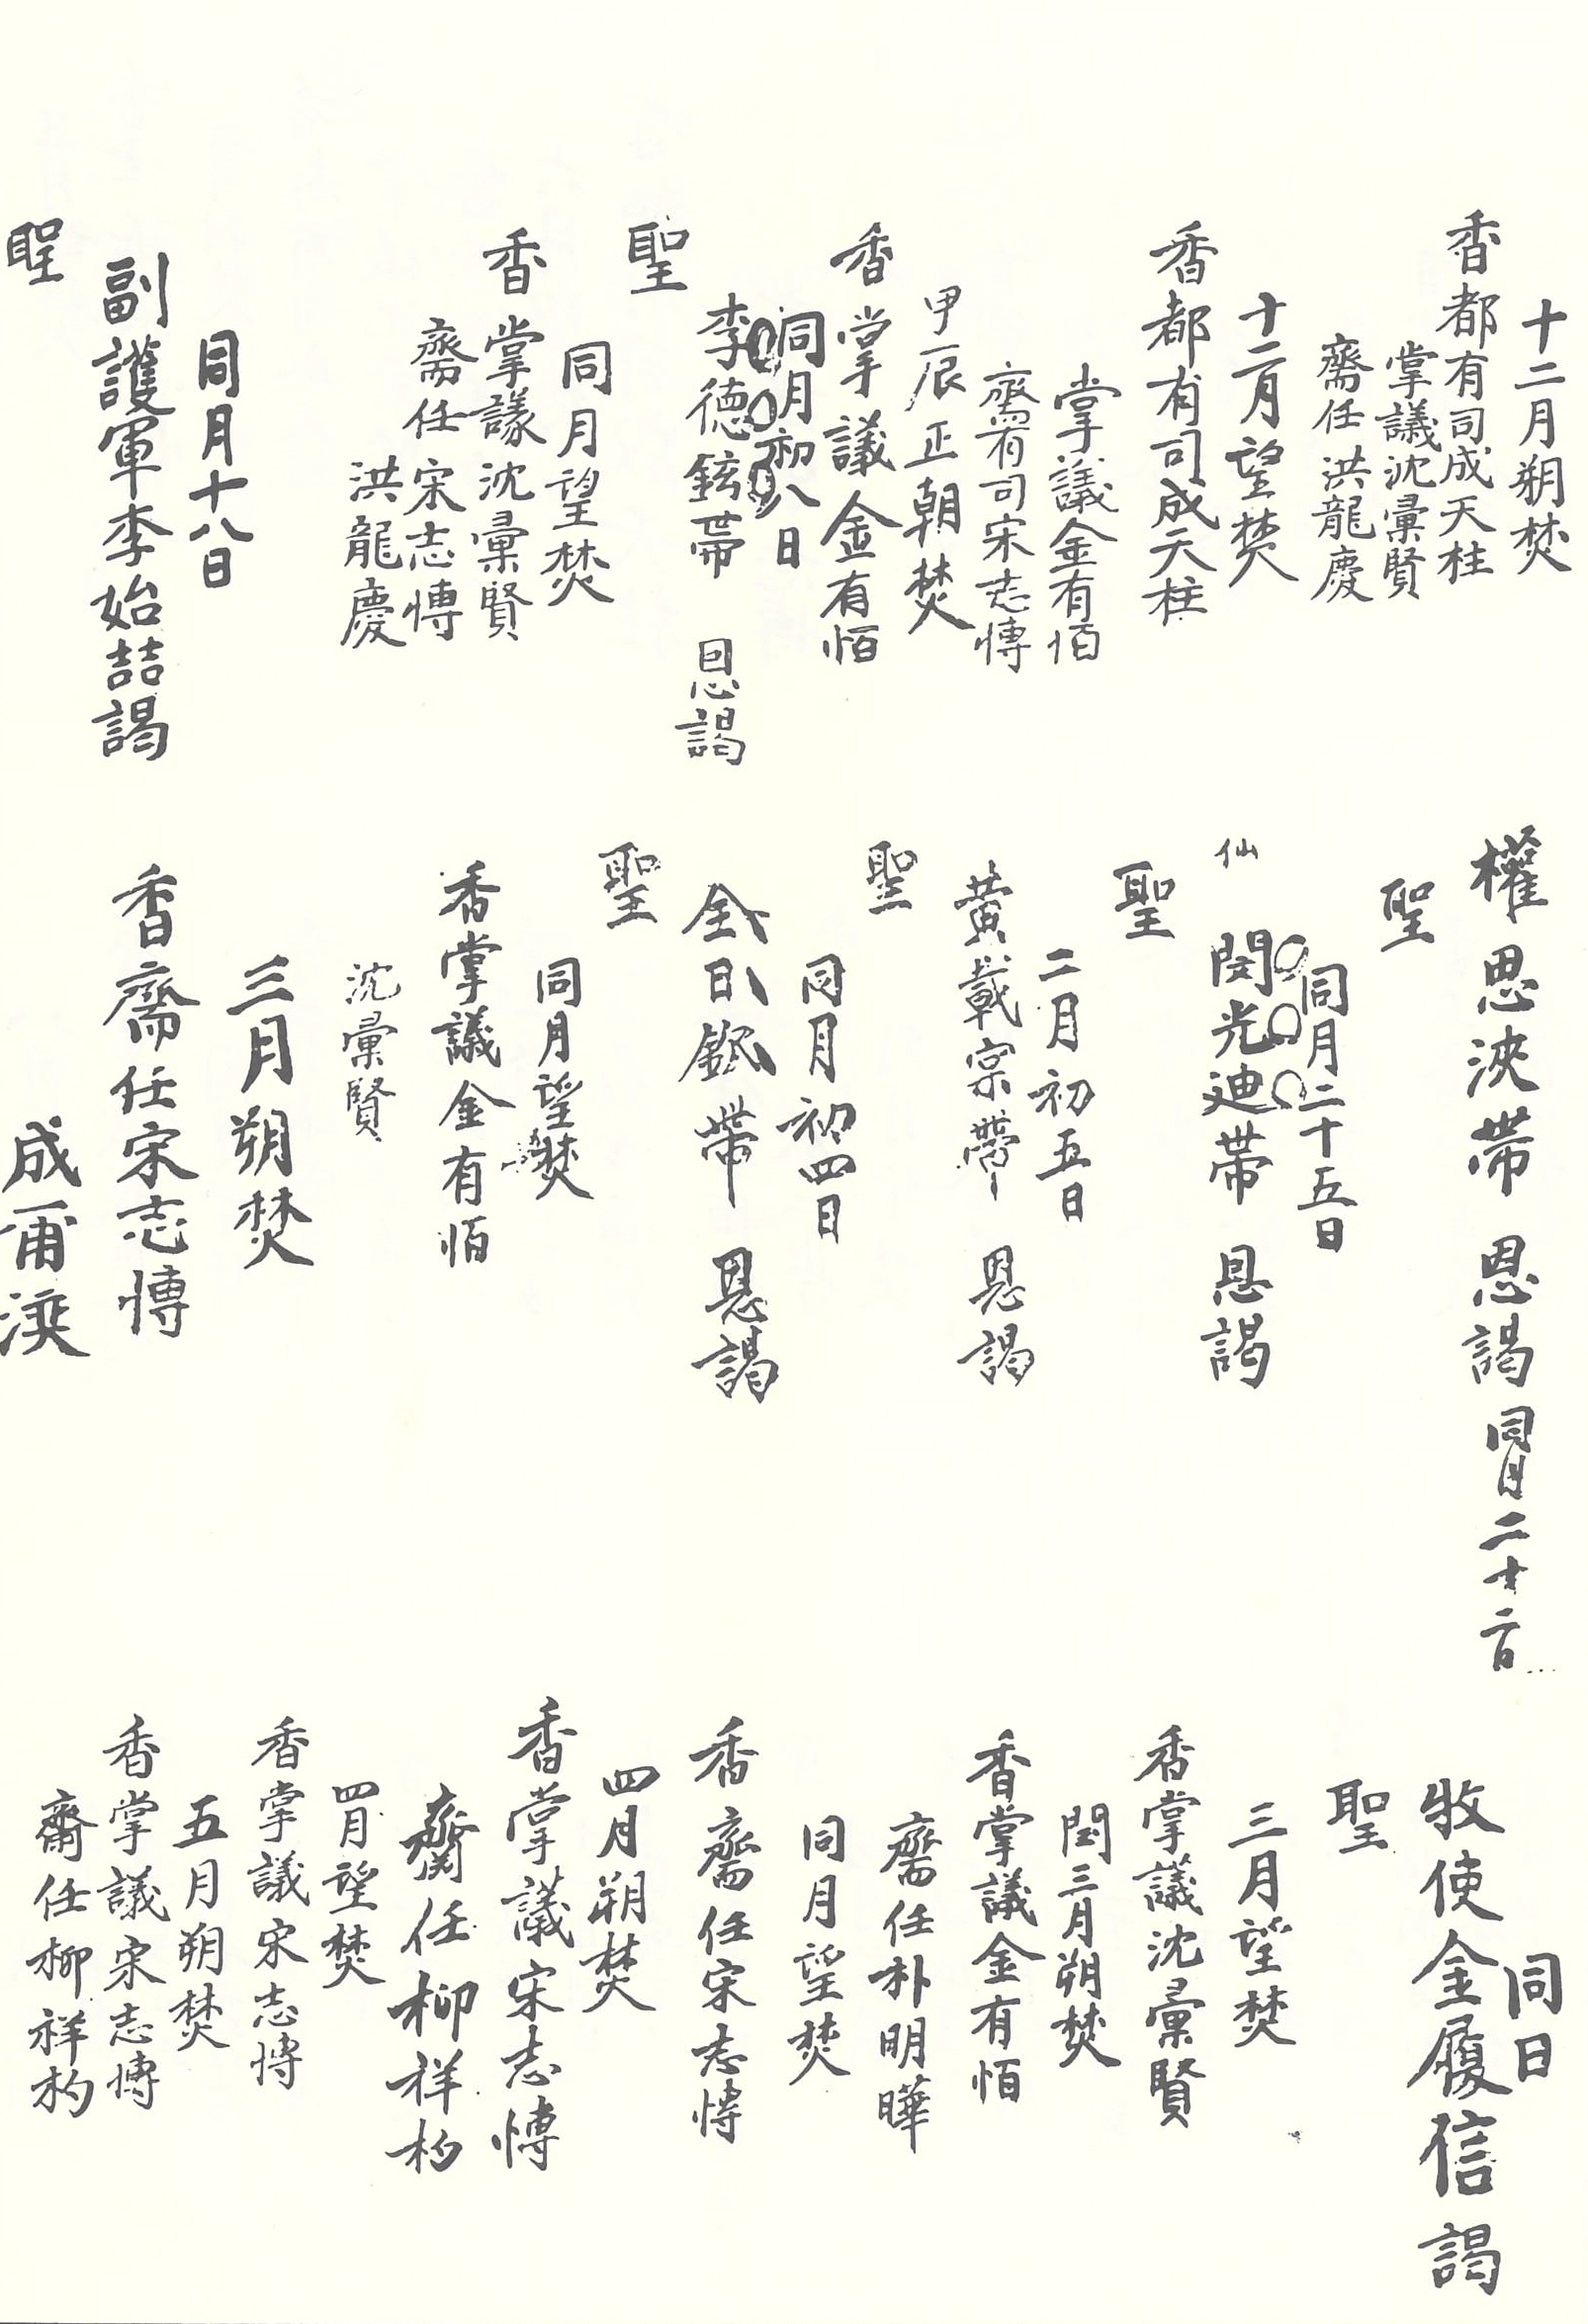 十二月朔焚
香都有司成天柱
掌議沈彙賢
齋任洪龍慶
十二月望焚
香都有司成天柱
掌議金有恒
齋有司宋志愽
甲辰正朝焚
香掌議金有恒
同月初八日
李德鉉帶　恩謁
聖
同月望焚
香掌議沈彙賢
齋任宋志愽
洪龍慶
同月十八日
副護軍李始喆謁
聖
權思浹帶恩謁同月二十二日
聖
同月二十五日
仙
閔光迪帶恩謁
聖
二月初五日
黄載宗帶恩謁
聖
同月初四日
帶恩謁
聖
同月望焚
香掌議金有恒
沈彙賢
三月朔焚
香齋任宋志愽
成爾
同日
牧使金履信謁
聖
三月望焚
香掌議沈彙賢
閏三月朔焚
香掌議金有恒
齋任朴明曄
同月望焚
香齋任宋志愽
四月朔焚
香掌議宋志愽
齋任柳祥杓
四月望焚
香掌議宋志愽
五月朔焚
香掌議宋志愽
齋任柳祥杓